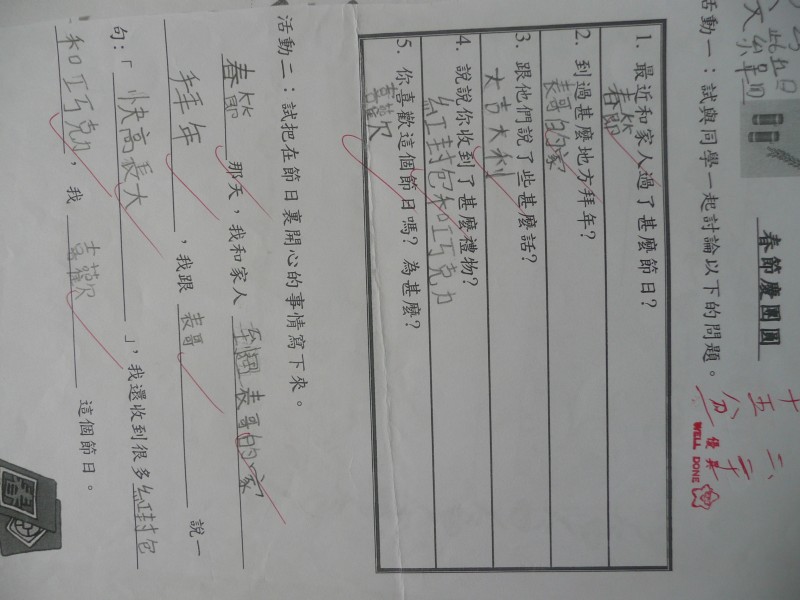 春節慶團圓
十五分
二、二十
優異
WELL DONE
活動一：試與同學一起討論以下的問題。
1. 最近和家人過了甚麼節日？
春節
2. 到過甚麼地方拜年？
表哥的家
3. 跟他們說了些甚麼話？
大吉大利
4. 說說你收到了甚麼禮物？
紅封包和巧克力
5. 你喜歡這個節日嗎？為甚麼？
喜歡
活動二：試把在節日裏開心的事情寫下來。
春節 那天，我和家人 到過表哥的家
拜年 ，我跟 表哥 說一
句：「 快高長大 」，我還收到很多 紅封包
和巧克力 ，我 喜歡 這個節日。